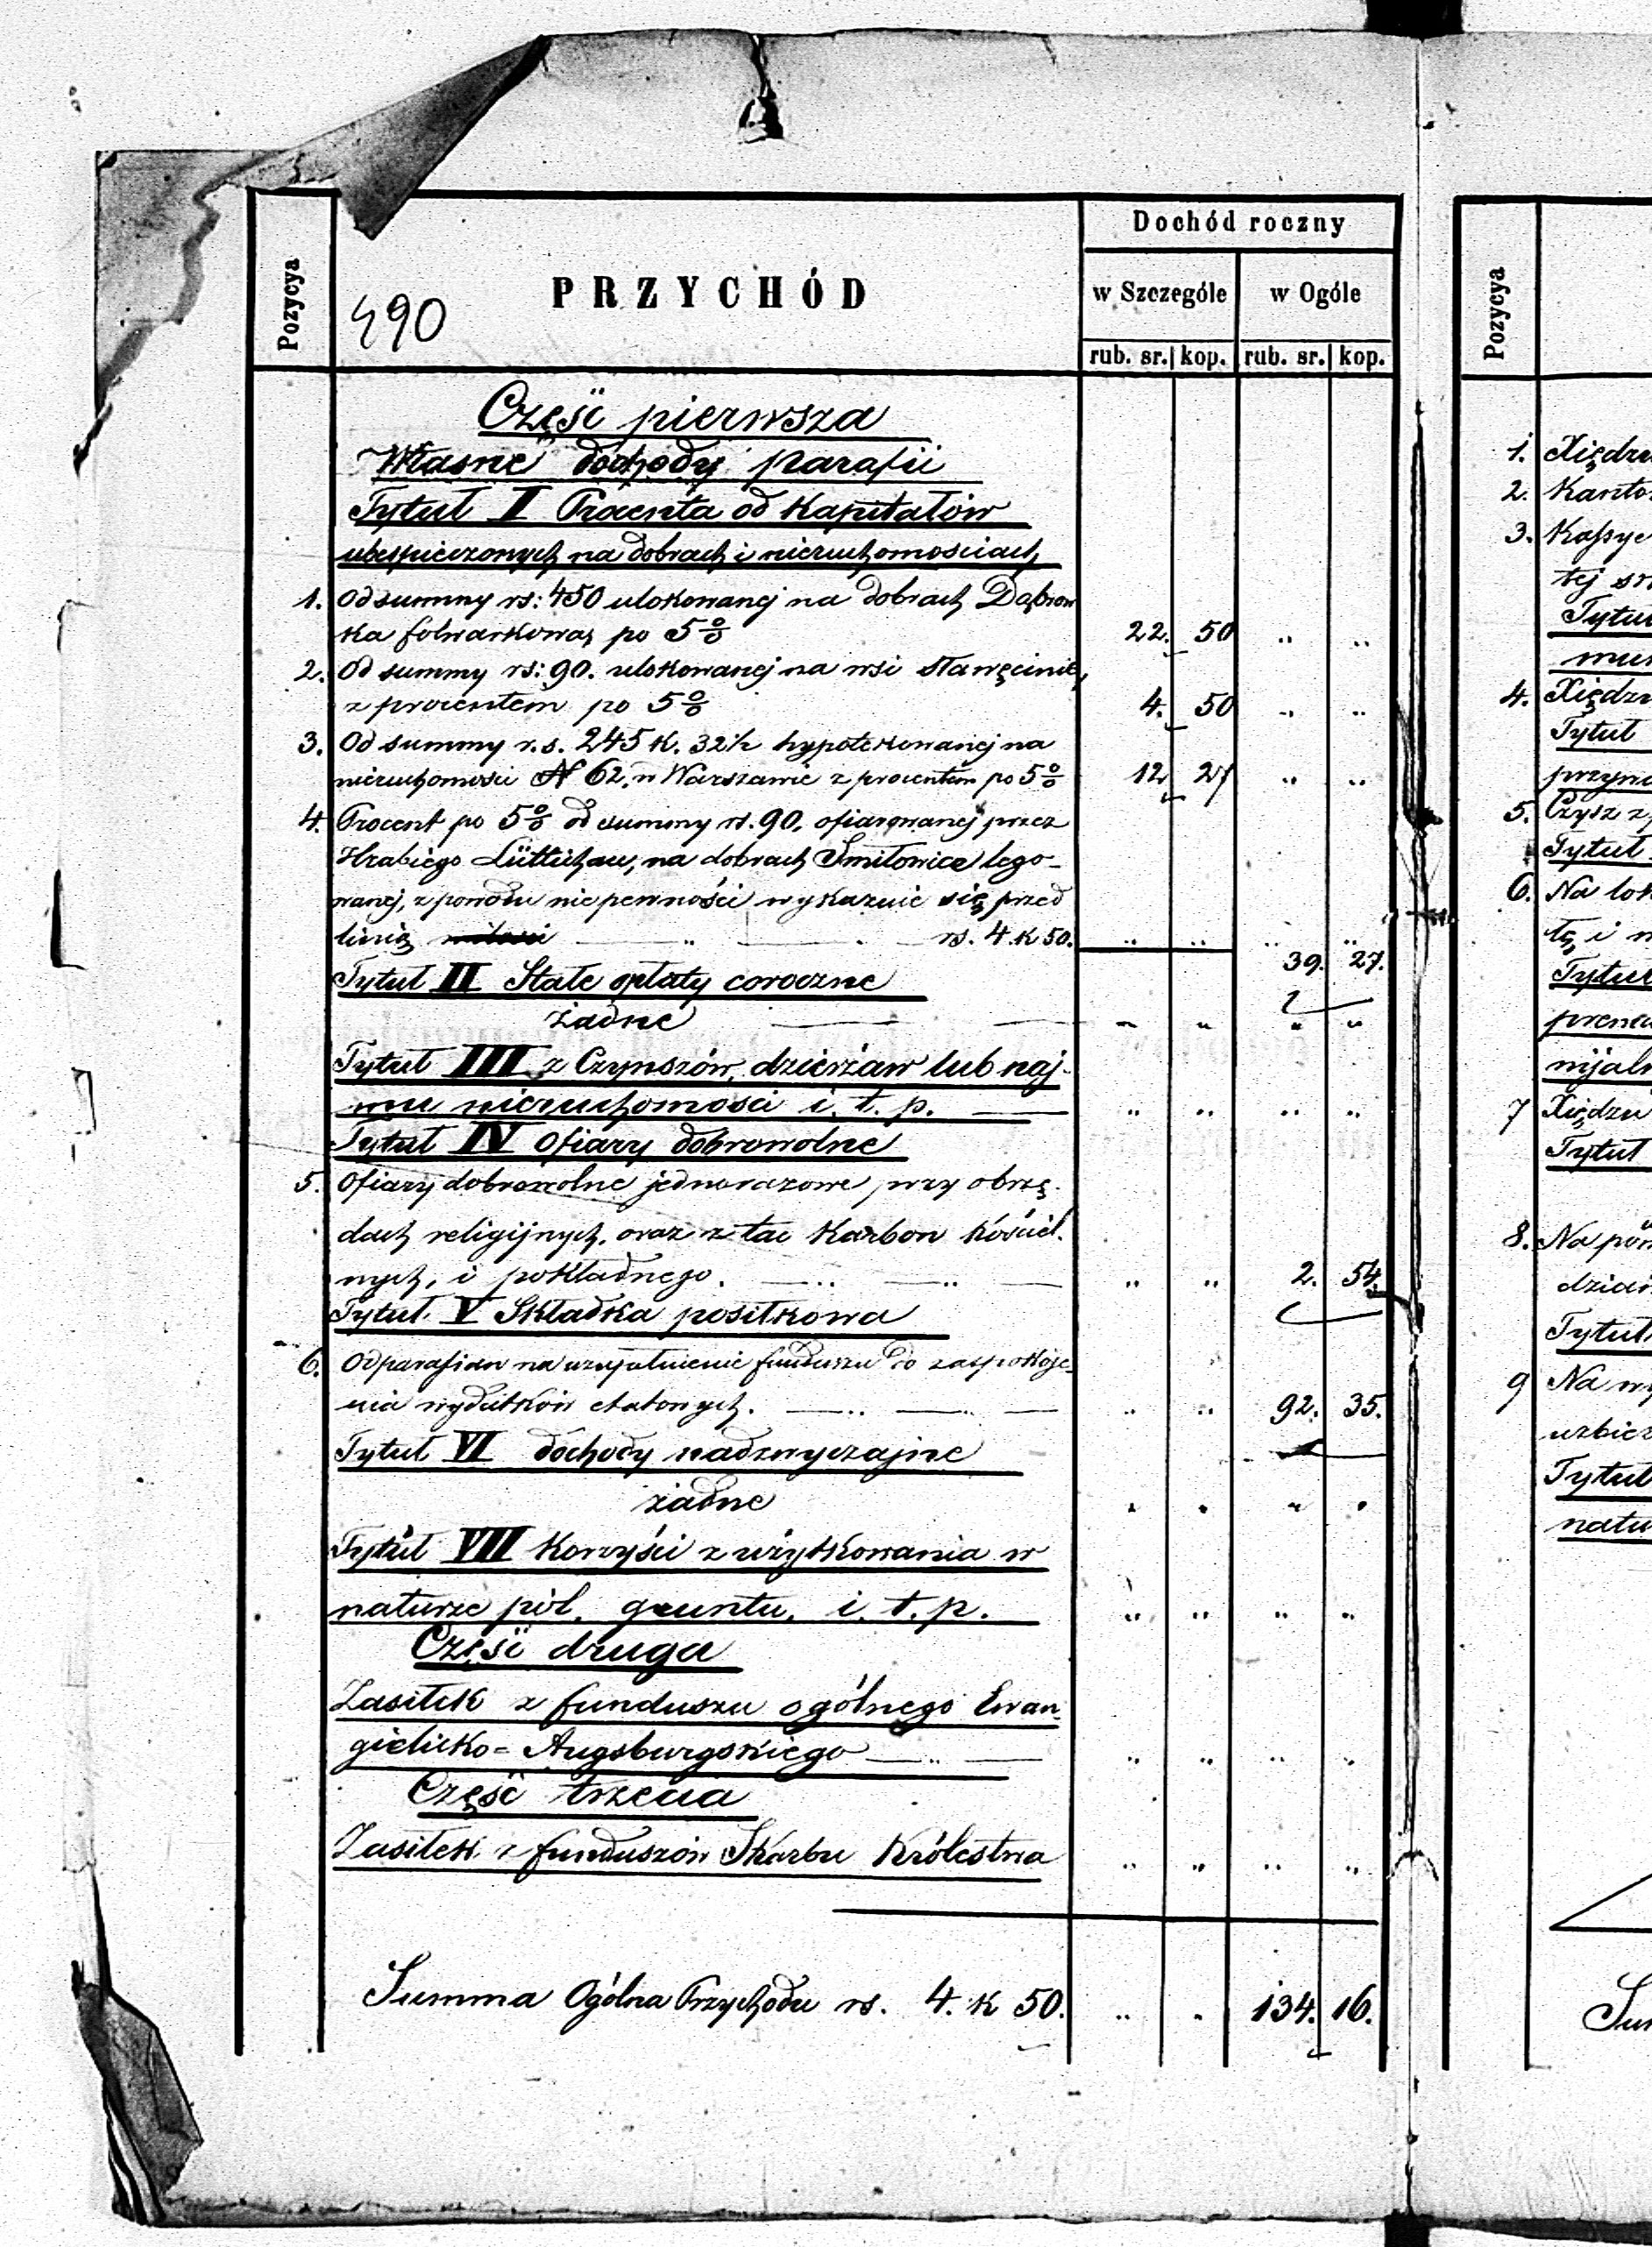 Dochód roczny
Pozycya
490
PRZYCHÓD
w Szczególe w Ogóle
Pozycya
rub. sr. kop. rub. sr. kop.
Część pierwsza
Własne dochody parafii
Tytuł I Procenta od kapitałów
ubespieczonych na dobrach i nieruchomościach
1. Od summy rs: 450 ulokowanej na dobrach Dąbrow
ka folwarkowa, po 5% 22. 50 " "
2. Od summy rs: 90. ulokowanej na wsi Sławęcinie,
z procentem po 5% 4. 50 " "
3. Od summy r.s. 245 k. 32½ hypotekowanej na
nieruchomości N 62, w Warszawie z procentem po 5% 12 27 " "
4. Procent po 5% od summy rs. 90, ofiarowanej przez
Hrabiego Lüttichau, na dobrach Smiłowice lego-
wanej, z powodu niepewności wykazuie się przed
linią rs. 4. k 50. " " " "
39. 27.
Tytuł II Stałe opłaty coroczne
żadne " " " "
Tytuł III z Czynszów, dzierżaw lub naj-
mu nieruchomości i. t. p. " " " "
Tytuł IV Ofiary dobrowolne
5. Ofiary dobrowolne jednorazowe przy obrzę-
dach religijnych, oraz z tac karbon kościel.
nych, i pokładnego. " " 2. 54.
Tytuł V Składka posiłkowa
6. Od parafian na uzupełnienie funduszu do zaspokoje-
nia wydatków etatowych. " " 92. 35.
Tytuł VI dochody nadzwyczajne
żadne " " " "
Tytuł VII Korzyści z użytkowania w
naturze pól, gruntu, i. t. p. " " " "
Część druga
Zasiłek z funduszu ogólnego Ewan-
gielicko=Augsburgskiego " " " "
Część trzecia
Zasiłek z funduszów Skarbu Królestwa " " " "
Summa Ogólna Przychodu rs. 4. k 50. " " 134. 16.
1. Xiędzu
2. Kanto
3. Kassye
tej
Tytuł
4. Xiędzu
Tytuł
5. Czysz z
Tytuł
6. Na
tę i
Tytuł
7 Xiędzu
Tytuł
8. Na
Tytuł
9 Na
Tytuł
natu
Sum